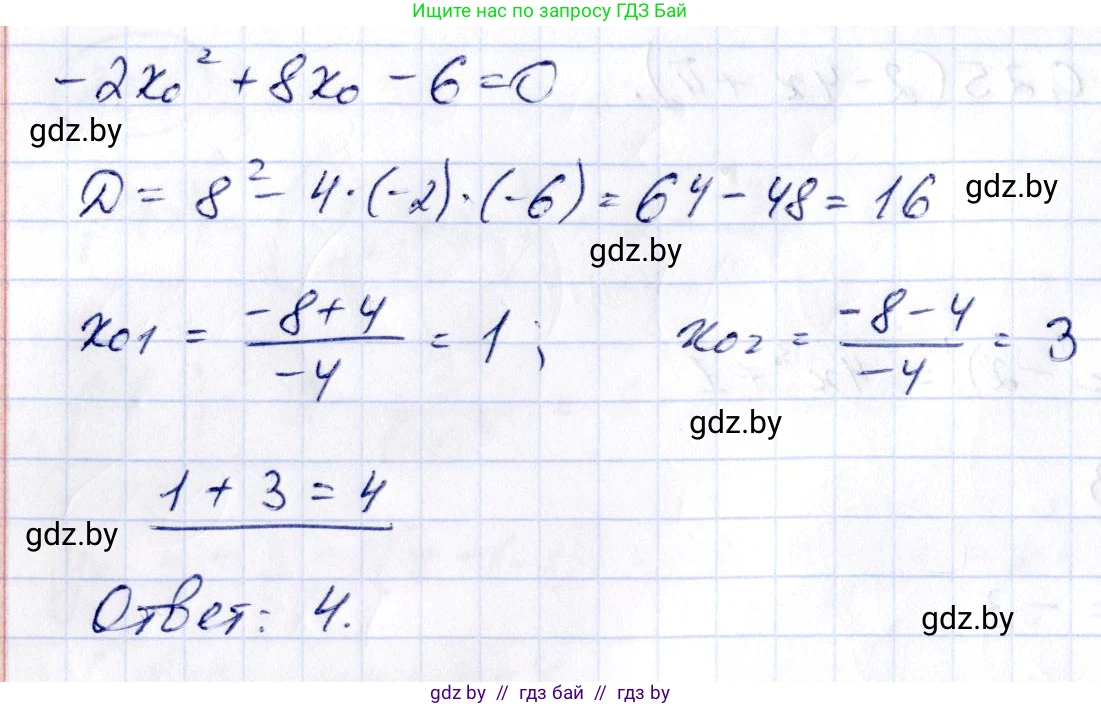 Ищите нас по запросу ГДЗ Бай
-2x₀² + 8x₀ - 6 = 0
gdz.by
D = 8² - 4·(-2)·(-6) = 64 - 48 = 16
gdz.by
gdz.by
x₀₁ = (-8+4)/(-4) = 1; x₀₂ = (-8-4)/(-4) = 3
gdz.by
1 + 3 = 4
gdz.by
Ответ: 4.
gdz.by
gdz by // гдз бай // гдз by